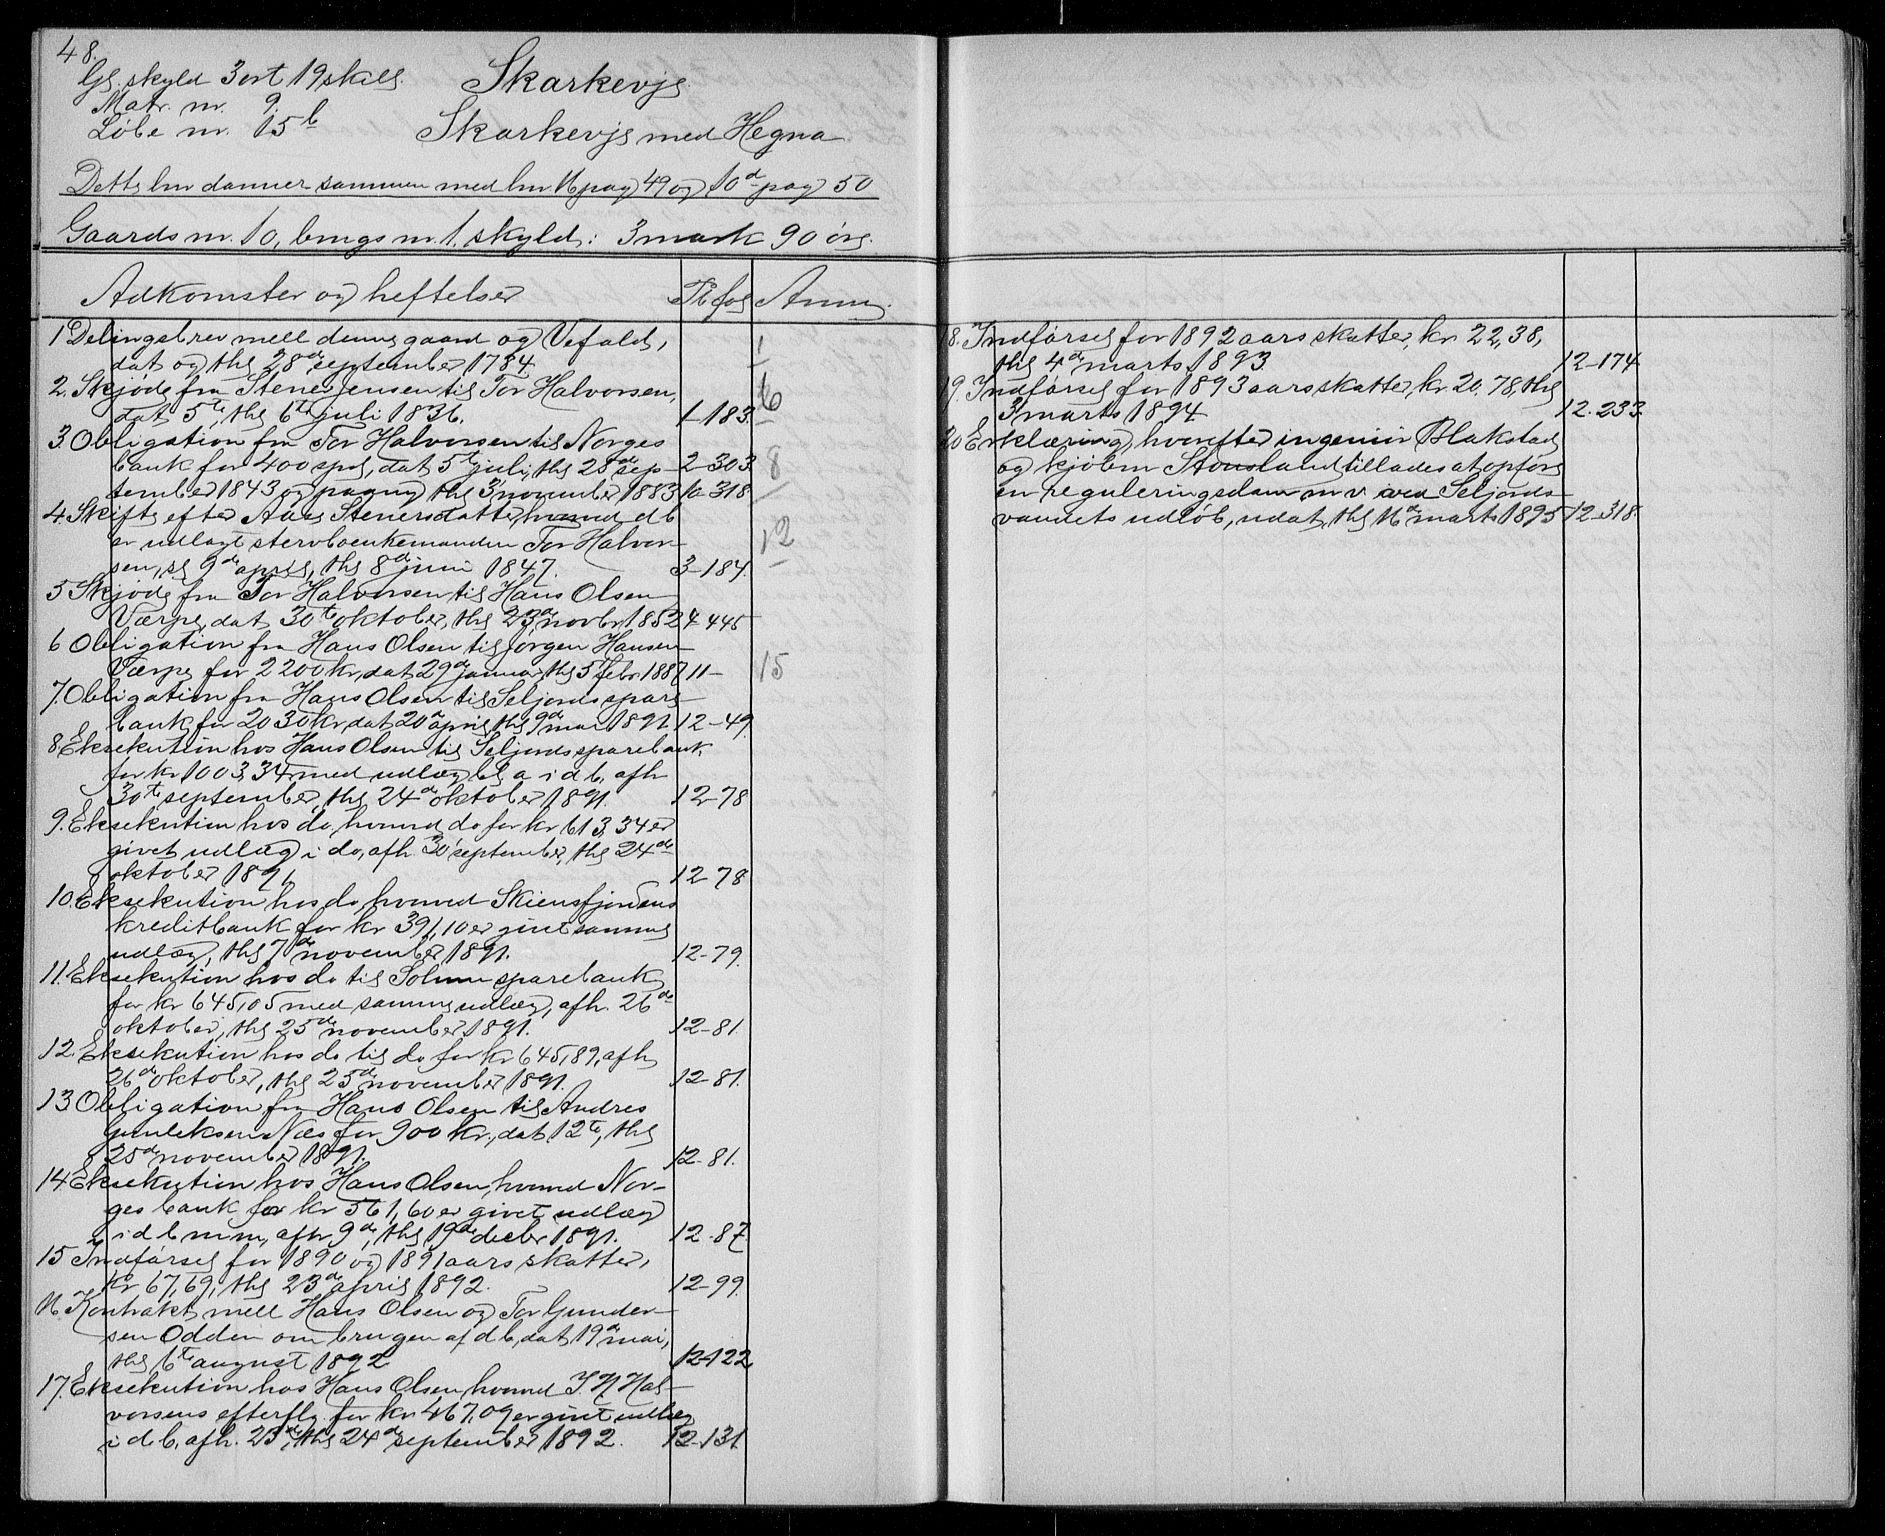 48.
Gl. skyld 3 ort 19 skill. Skarkevje
Matr. nr. 9.
Løbe nr. 15b Skarkevje med Hegna
Dette lnr danner sammen med lnr. 16 pag 49 og 10d pag 50
Gaards nr. 10, brugs nr. 1, skyld: 3 mark 90 øre.
Adkomster og heftelser Pb fol Anm.
1 Delingsbrev mell denne gaard og Vefald, 1
dat og thl 28de september 1784
2. Skjøde fra Stener Jensen til Tor Halvorsen, 6
dat 5te, thl 6te juli 1836. 1-183.
3. Obligation fra Tor Halvorsen til Norges
bank for 400 spd, dat 5te juli, thl 28de sep- 2-303 8
tember 1843 og paany thl 3 november 1883 10-318
4 Skifte efter Aase Stenersdatter, hvorved d b
er udlagt stervboenkemanden Tor Halvor- 12
sen, sl 9de april, thl 8de juni 1847. 3-184.
5 Skjøde fra Tor Halvorsen til Hans Olsen
Værpe, dat 30te oktober, thl 23de novbr 1852 4-445
6 Obligation fra Hans Olsen til Jørgen Hansen
Værpe for 2200 kr, dat 29de januar, thl 5 febr 1887 11- 15
7. Obligation fra Hans Olsen til Seljords spare-
bank for 2030 kr, dat 20de april, thl 9de mai 1891 12-49.
8. Eksekution hos Hans Olsen til Seljords sparebank
for kr 1003,34 med udlæg bl a i d b, afh
30te september, thl 24de oktober 1891. 12-78
9. Eksekution hos do, hvorved do for kr 613,34 er
givet udlæg i do, afh. 30 september, thl 24de
oktober 1891 12-78
10. Eksekution hos do, hvorved Skiensfjordens
kreditbank for kr 391,10 er givet samme
udlæg, thl 7de november 1891. 12-79.
11. Eksekution hos do til Solum sparebank
for kr 645,05 med samme udlæg, afh. 26de
oktober, thl 25de november 1891. 12-81.
12. Eksekution hos do til do for kr 645,89, afh
26de oktober, thl 25de november 1891. 12-81.
13. Obligation fra Hans Olsen til Andres
Gunleksen Næs for 900 kr., dat 12te, thl
25de november 1891. 12-81.
14. Eksekution hos Hans Olsen, hvorved Nor-
ges bank for kr 561,60 er givet udlæg
i d b m m, afh 9de, thl 19de decbr 1891. 12-87.
15 Indførsel for 1890 og 1891 aars skatter,
kr 67,69, thl 23de april 1892. 12-99.
16 Kontrakt mell Hans Olsen og Tor Gunder-
sen Odden om brugen af d b, dat 19de mai,
thl 6te august 1892 12-122
17. Eksekution hos Hans Olsen, hvorved J. N Hal-
vorsens efterflg. for kr 467,09 er givet udlæg
i d. b, afh. 23de, thl 24de september 1892. 12-131
18. Indførsel for 1892 aars skatter, kr. 22,38,
thl 4de marts 1893 12-174
19. Indførsel for 1893 aars skatter, kr 20,78, thl
3 marts 1894 12-233
20 Erklæring, hvorefter ingeniør Blakstad
og kjøbm Stousland tillades at opføre
en reguleringsdam m v ved Seljords-
vandets udløb, udat, thl 16de marts 1895 12-318.